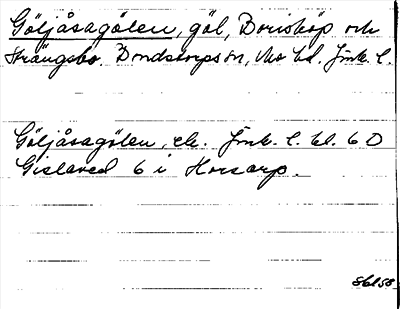 Göljåsagölen, göl, Boriskóp och
Strängsbo. Bondstorps sn, Mo hd. Jmk. l.
Göljåsagölen, ek. Jmk. l. bl. 6 O
Gislaved 6 i Horsarp.